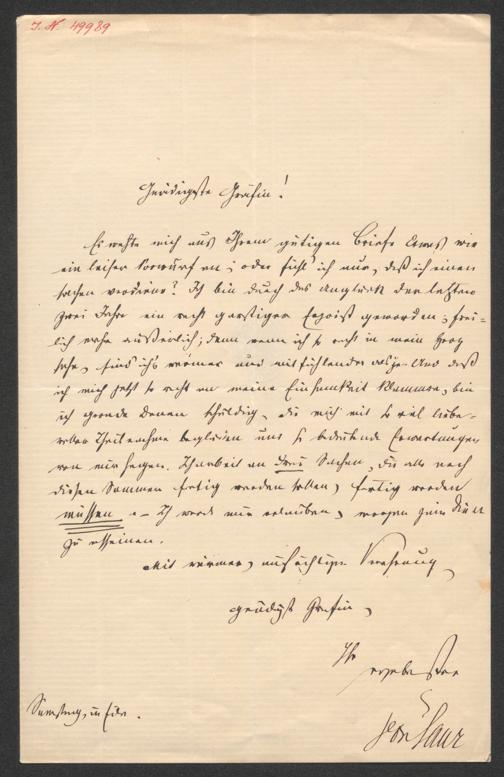 I. N. 49989
Gnädigste Gräfin!
Es wehte mich aus Ihrem gütigen Briefe Etwas wie
ein leiser Vorwurf an; oder fühl' ich nur, daß ich einen
solchen verdiene? Ich bin durch das Unglück der letzten
zwei Jahre ein recht garstiger Egoist geworden; frei-
lich mehr äußerlich; denn wenn ich so recht in mein Herz
sehe, find' ich's wärmer und mitfühlender als je. Und daß
ich mich jetzt so recht an meine Einsamkeit klammere, bin
ich gerade Denen schuldig, die mich mit so viel liebe-
voller Theilnahme beglücken und so bedeutende Erwartungen
von mir hegen. Ich arbeite an drei Sachen, die alle noch
diesen Sommer fertig werden sollen, fertig werden
müssen. – Ich werde mir erlauben, morgen zum Diner
zu erscheinen.
Mit warmer, aufrichtiger Verehrung,
gnädigste Gräfin,
Ihr
ergebenster
Ferd. Saar
Samstag, in Eile.